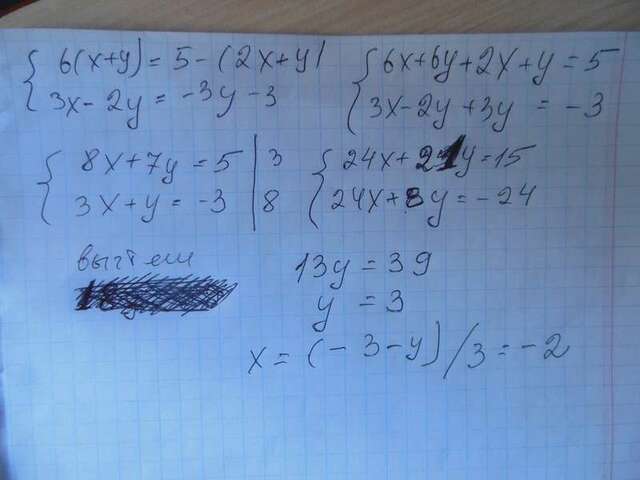 6(x+y) = 5 - (2x+y)
3x - 2y = -3y - 3
6x+6y+2x+y = 5
3x-2y+3y = -3
8x+7y = 5 | 3
3x+y = -3 | 8
24x+21y=15
24x+8y = -24
вычтем
13y = 39
y = 3
x = (-3-y)/3 = -2